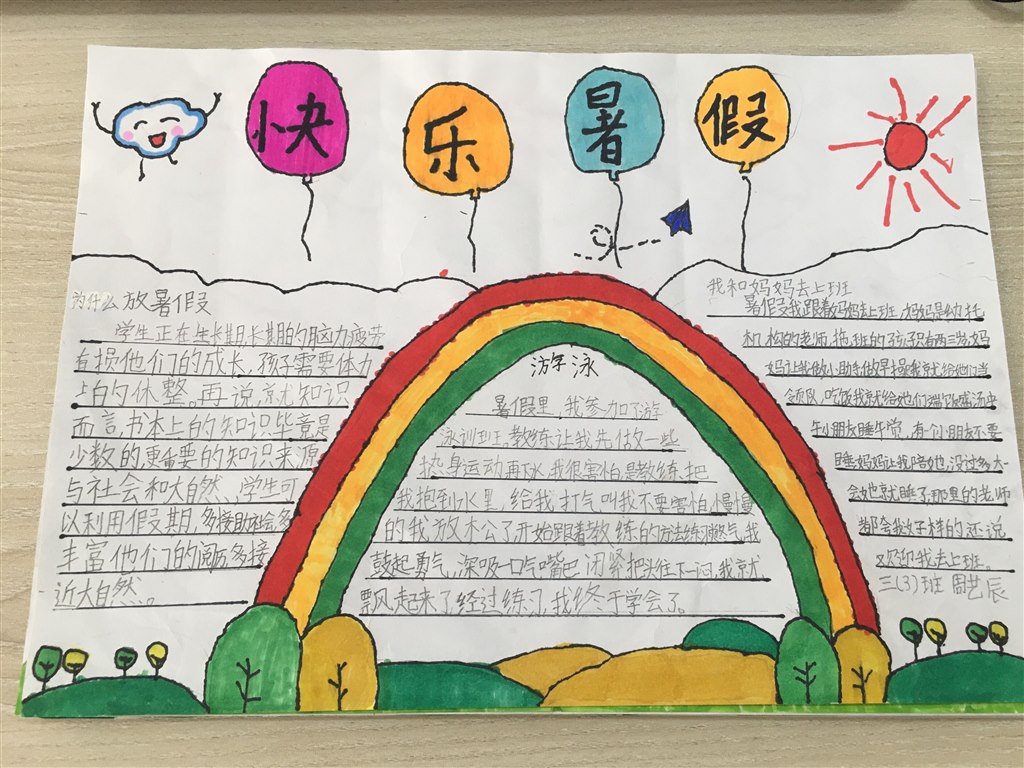 快乐暑假
为什么放暑假
学生正在生长期,长期的脑力疲劳
有损他们的成长,孩子需要体力
上的休整。再说,就知识
而言,书本上的知识毕竟是
少数的更重要的知识来源
与社会和大自然、学生可
以利用假期,多接助社会,多
丰富他们的阅历,多接
近大自然。
游泳
暑假里,我参加了游
泳训班,教练让我先做一些
热身运动再下水,我很害怕是教练把
我抱到水里,给我打气叫我不要害怕,慢慢
的我放木公了开始跟着教练的方法练习憋气,我
鼓起勇气,深吸一口气嘴巴闭紧把头往下一闷,我就
飘起来了,经过练习,我终于学会了。
我和妈妈去上班
暑假我跟着妈妈去上班,妈妈是幼托
机松的老师,拖班的孩子只有两三岁,妈
妈让我做小助手,做早操我就给他们当
领队,吃饭我就给他们端饭盛汤中
午小朋友睡午觉,有个小朋友不要
睡妈妈让我陪她,没过多大一
会她就睡了,那里的老师
都会我好棒的还说
欢迎我去上班。
三(3)班 周艺辰